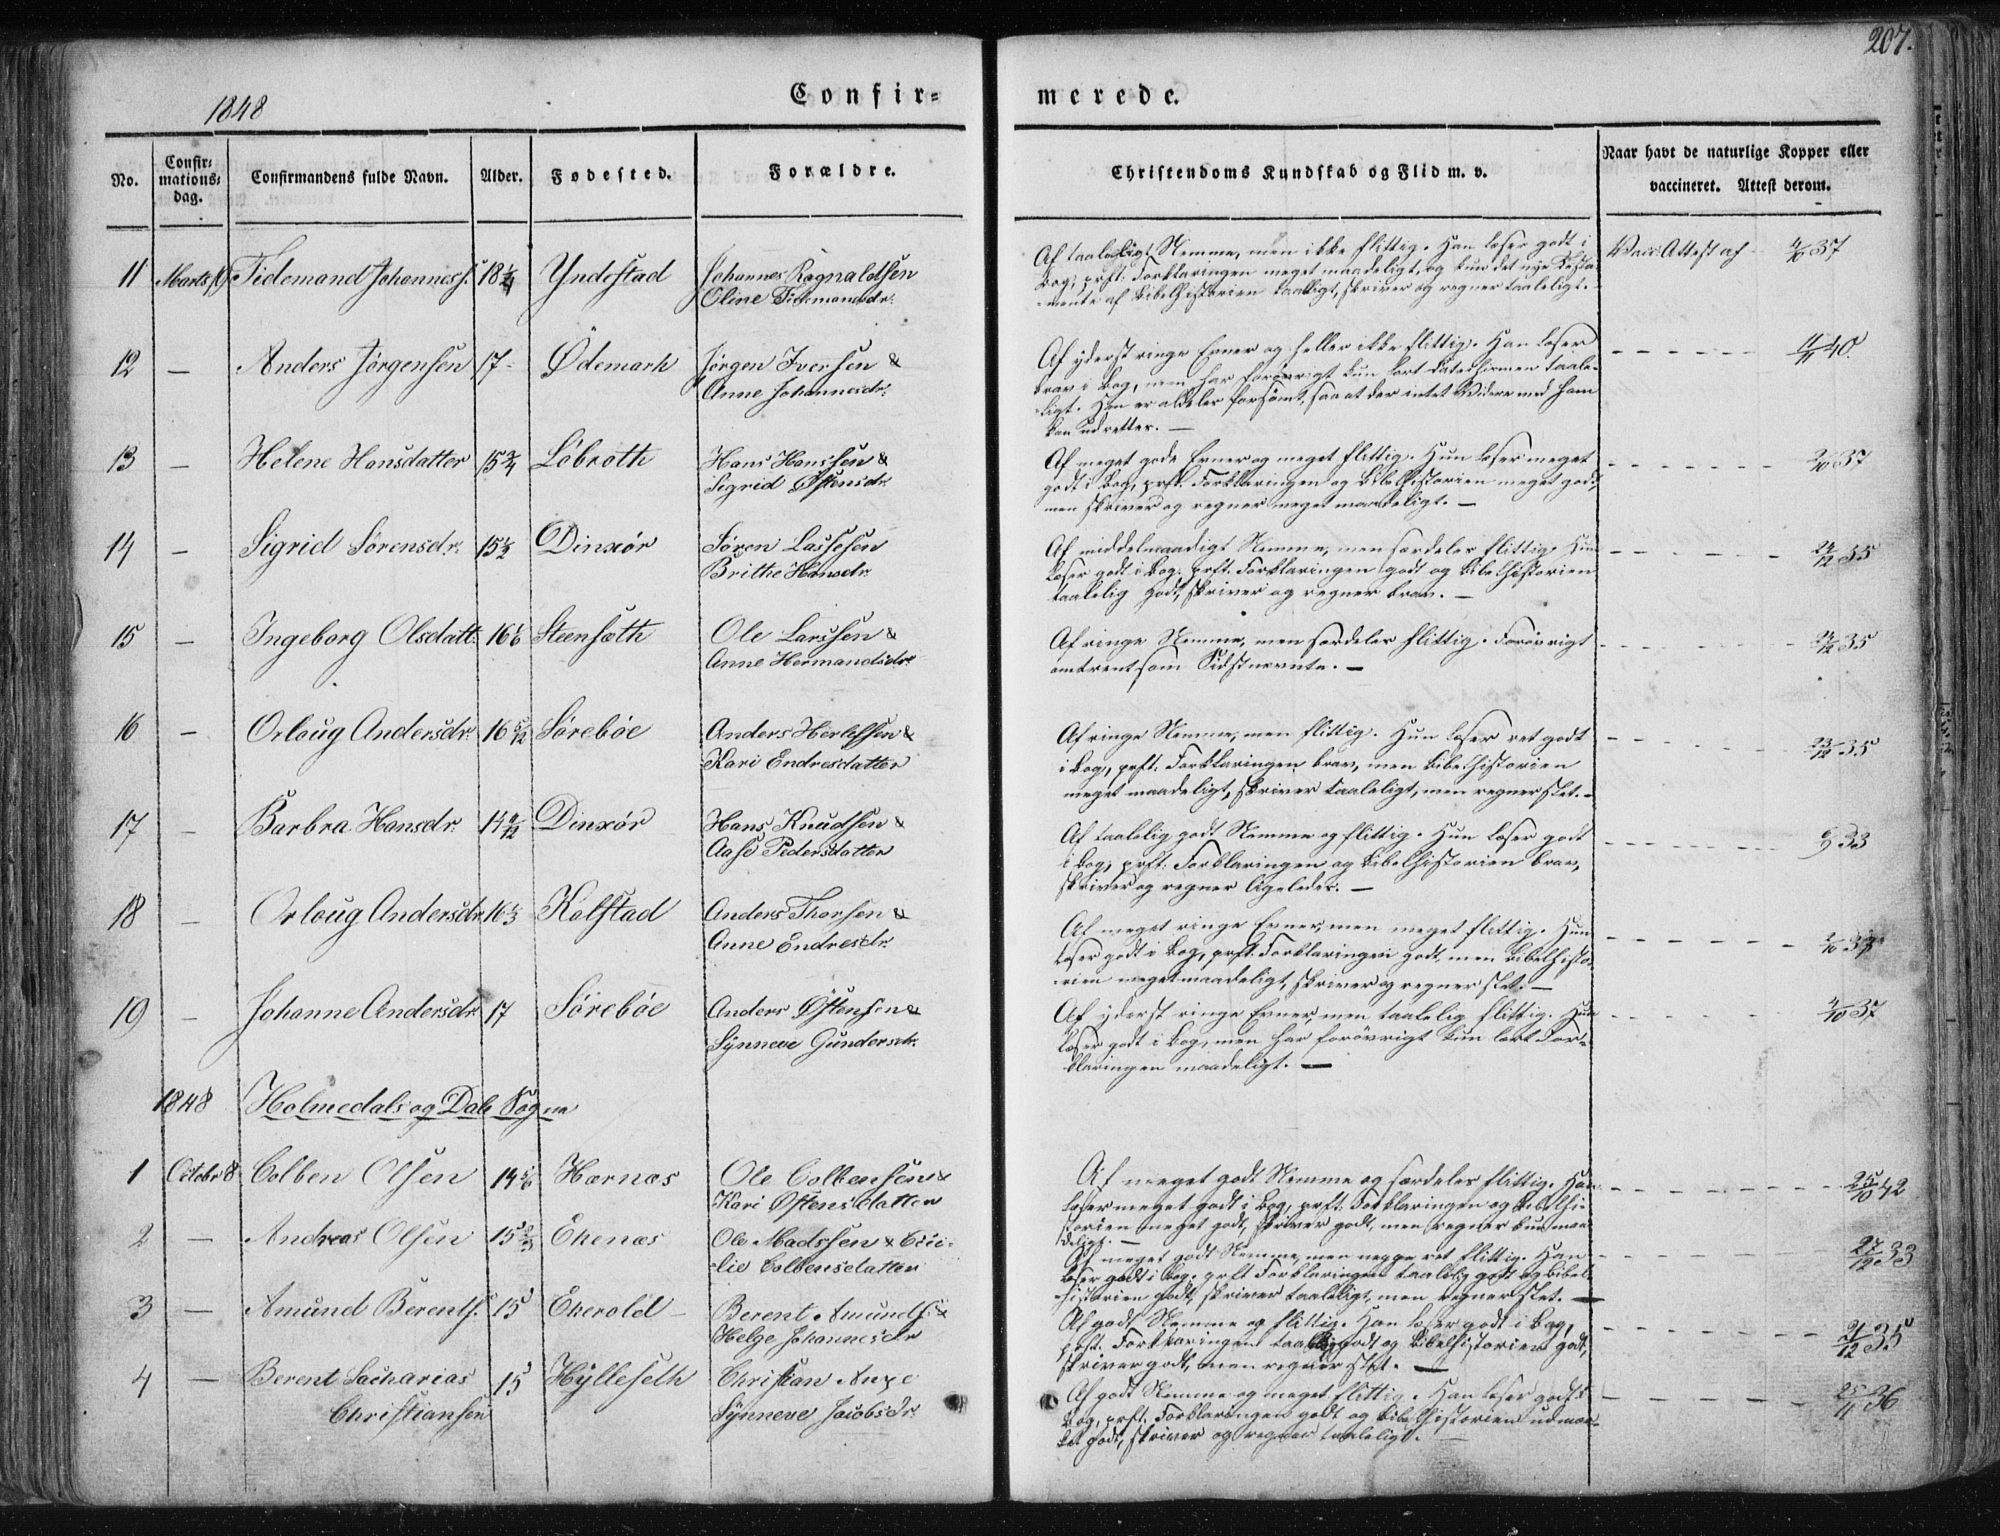 207.
1848
Confir= merede.
No. Confir= mations= dag. Confirmandens fulde Navn. Alder. Fødested. Forældre. Christendoms Kundskab og Flid m. v. Naar havt de naturlige Kopper eller vaccineret. Attest derom.
11 Marts 19 Tidemand Johanness. 18 1/4 Yndestad Johannes Ragnaldsen
Oline Tidemandsdr.
Af taalelig Nemme, men ikke flittig. Han læser godt i
Bog, prst. Forklaringen meget maadeligt, og kun det nye Testa-
mente af Bibelhistorien taaleligt, skriver og regner taaleligt.
Vacc. Attest af 37
12 — Anders Jørgensen 17 - Ødemark Jørgen Iversen &
Anne Johannesdr.
Af yderst ringe Evner og heller ikke flittig. Han læser
brav i Bog, men har forøvrigt kun lært Catechismen taale-
ligt. Han er aldeles forsømt, saa at der intet Videre med ham
kan udrettes. —
40.
13 — Helene Hansdatter 15 3/4 Løbroth Hans Hanssen &
Sigrid Østensdr.
Af meget gode Evner og meget flittig. Hun læser meget
godt i Bog, prst. Forklaringen og Bibelhistorien meget godt,
men skriver og regner meget maadeligt. —
2/10 37
14 — Sigrid Sørensdr. 15 1/2 Dinxør Søren Lassesen
Brithe Hansdr.
Af middelmaadigt Nemme, men særdeles flittig. Hun
læser godt i Bog, prst. Forklaringen godt og Bibelhistorien
taalelig godt, skriver og regner brav. —
22/12 35
15 — Ingeborg Olsdatt. 16 1/6 Steensæth Ole Larssen &
Anne Hermandsdr.
Af ringe Nemme, men særdeles flittig. Forøvrigt
omtrent som Sidstnævnte. —
22/12 35
16 — Orloug Andersdr. 16 5/12 Sørebøe Anders Herlefsen &
Kari Endresdatter
Af ringe Nemme, men flittig. Hun læser ret godt
i Bog, prst. Forklaringen brav, men Bibelhistorien
meget maadeligt, skriver taaleligt, men regner slet. —
23/12 35
17 — Barbra Hansdr. 14 Dinxør Hans Knudsen &
Aase Pedersdatter
Af taalelig godt Nemme og flittig. Hun læser godt
i Bog, prst. Forklaringen og Bibelhistorien brav,
skriver og regner ligeledes. —
6/9 33
18 — Orloug Andersdr. 16 1/3 Kolstad Anders Thorsen &
Anne Endresdr.
Af meget ringe Evner, men meget flittig. Hun
læser godt i Bog, prst. Forklaringen godt, men Bibelhisto-
rien meget maadeligt, skriver og regner slet. —
2/10 37
19 — Johanne Andersdr. 17 Sørebøe Anders Østensen &
Synneve Gundersdr.
Af yderst ringe Evner, men taalelig flittig. Hun
læser godt i Bog, men har forøvrigt kun lært For-
klaringen maadeligt. —
4/10 37
1848 Holmedals og Dals Sogne
1 Octobr 8 Colben Olsen 14 5/6 Hærnæs Ole Colbensen &
Kari Østensdatter
Af meget godt Nemme og særdeles flittig. Han
læser meget godt i Bog, prst. Forklaringen og Bibelhi-
storien meget godt, skriver godt, men regner kun maa-
deligt. —
25/10 42
2 — Andreas Olsen 15 2/3 Ekenæs Ole Madssen & Ceci-
lie Colbensdatter
Af meget godt Nemme, men neppe ret flittig. Han
læser godt i Bog, prst Forklaringen taalelig godt og Bibel-
historien godt, skriver taaleligt, men regner slet. —
27/12 33
3 — Amund Berents. 15 Ekerold Berent Amunds. &
Helge Johannesdr
Af godt Nemme og flittig. Han læser godt i Bog,
prst. Forklaringen taalelig godt og Bibelhistorien godt,
skriver godt, men regner slet. —
21/12 35
4 — Berent Sacharias
Christiansen 15 Hylleseth Christian Auge
Synneve Jacobsdr.
Af godt Nemme og meget flittig. Han læser godt i
Bog, prst. Forklaringen godt og Bibelhistorien udmær-
ket godt, skriver og regner taaleligt. —
25/11 36